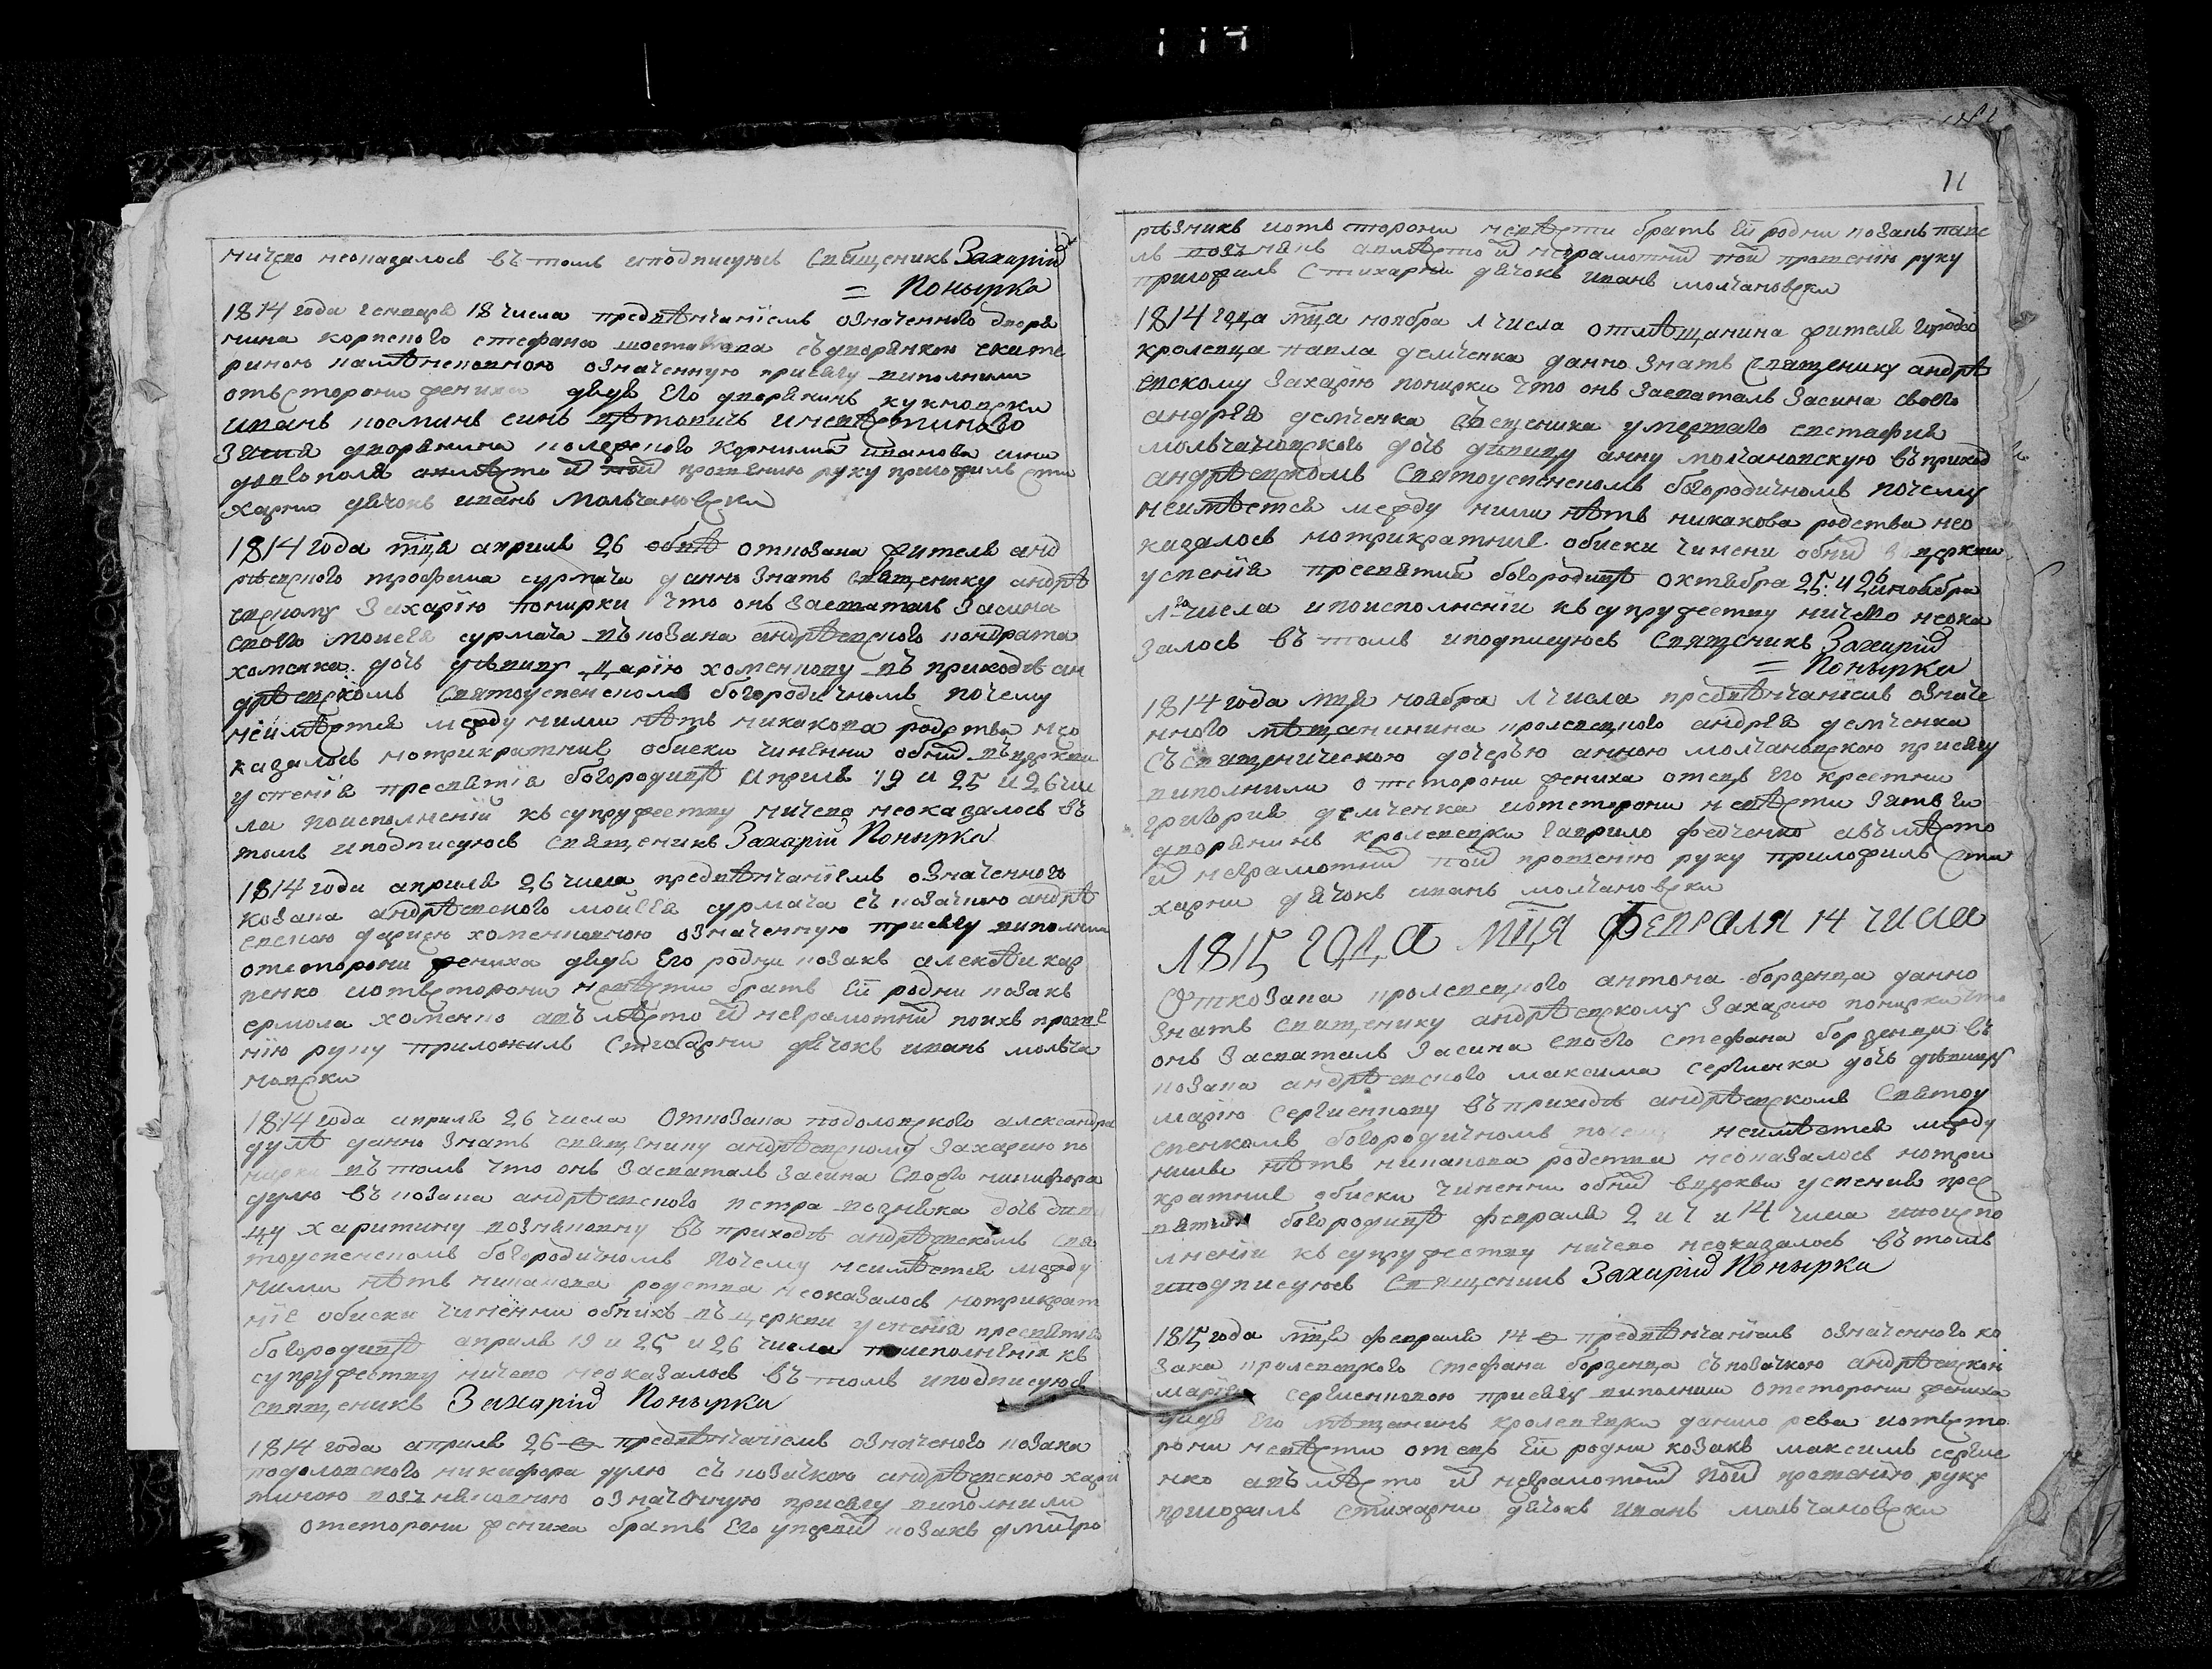 ничево неоказалось въ томъ иподписуюсь Священикъ Захарій
= Понырка
1814 года генваря 18 числа предвѣнчаніемъ означенного дворя
нина корпеного стефана шоста съдворянкою екате
риною означенную присягу виполнили
отъстороны жениха дядя Его дворянинъ
иванъ синъ инев
дворянина ивановъ синъ
авмѣсто й той прошению руку приложилъ сти
харни дячокъ иванъ Мольчановски
1814 года мця апреля 26 обит откозана жителя анд
рѣевского трофима сурмача данно знать священику андрѣ
евскому Захарію понирки что онъ засваталъ засина
своего моисея сурмача въкозака андрѣевского кондрата
хоменка дочъ дѣвицу дарію хоменкову въ приходѣ ан
дрѣевскомъ Святоуспенскомъ богородичномъ почему
неимѣется между ними нѣтъ никакова родства нео
казалось нотрикратние обиски чиненни обній въцеркви
успенія пресвятія богородицѣ Априля 19 и 25 и 26 чи
ла поисполненій къ супружеству ничево неоказалось въ
томъ иподписуюсь Священикъ Захарій Понырка
1814 года априля 26 числа предвѣнчаніемъ означенного
козака андрѣевского мойсея сурмача съ козачкою андрѣ
евскою дариею хоменковною означенную присягу виполнили
отстороны жениха дядя Его родни козакъ алексѣи кар
пенко иотъстороны невѣсти братъ Ей родни козакъ
ермола хоменко авъ мѣсто й неграмотний поихъ проше
нію руку приложилъ Стихарни дячокъ иванъ мольча
новски
1814 года априля 26 числа Откозака подоловского александра
дулѣ данно знать священику андрѣевскому Захарию по
нирки въ томъ что онъ Засваталъ засина Своего никифора
дулю въ козака андрѣевского петра позняка дочъ дѣви
цу харитину познякову въ приходѣ андрѣевскомъ Свя
тоуспенскомъ богородичномъ почему неимѣется между
ними нѣтъ никакова родства неоказалось нотрикрат
ніе обиски чиненни обнихъ въ церкви успенія пресвятія
богородицѣ априля 19 и 25 и 26 числа поисполненія къ
супружеству ничево неоказалось въ томъ иподписуюсь
Священикъ Захарій Понырка
1814 года априля 26 предвѣнчаніемъ означеного козака
подоловского никифора дулю съ козачкою андрѣевскою хари
тиною означенную присягу виполнили
отстороны жениха братъ Его козакъ дмитро
11
рѣзникъ иотъ стороны невѣсти братъ Ей родни козакъ паве
лъ авмѣсто й неграмотній той прошенію руку
приложилъ Стихарни дячокъ иванъ молчановски
1814 года мца ноября 1 числа отмѣщанина жителя города
кролевца павла демченка данно знать Священику андрѣ
евскому Захарію понирки что онъ засваталъ засина своего
андрея демченка священика умершаго евстафия
мольчановского дочъ дѣвицу анну молчановскую въ приход
андрѣевскомъ Святоуспенскомъ богородичномъ почему
неимѣется между ними нѣтъ никакова родства нео
казалось нотрикратние обиски чинени обній церкви
успенія пресвятия богородицѣ октября 25 и 26 иноября
1го числа ипоисполненіи къ супружеству ничего неока
залось въ томъ иподписуюсь Священикъ Захарій
= Понырка
1814 года мця ноября 1 числа предвѣнчаніемъ означе
нного мѣщанинина кролевецкого андрея демченка
съсвященическою дочерью анною молчановскою присягу
виполнили отстороны жениха отецъ Его крестни
григория демченка иотстороны невѣсти зять Ея
дворянинъ кролевецки гаврило федченко авъмѣсто
й неграмотний той прошению руку приложилъ сти
харни дячокъ иванъ молчановски
1815 года мця Февраля 14 числа
Откозака кролевецкого антона борзенца данно
знать священику андрѣевскому Захарию понирки что
онъ Засваталъ Засина своего Стефана борзенца въ
козака андрѣевского максима сергиенка дочъ дѣвицу
марію сергиенкову въ приходѣ андрѣевскомъ Святоу
спенкомъ богородичномъ почему неимѣется между
ними нѣтъ никакова родства неоказалось нотри
кратние обиски чиненни обній вцеркви успения прес
вятия богородицѣ февраля 2 и 7 и 14 числа ипоиспо
лненіи къ супружеству ничево неоказалось въ томъ
иподписуюсь Священикъ Захарій Понырка
1815 года мця февраля 14 предвѣнчаніемъ означенного ко
зака кролевецкого Стефана борзенца съ козачкою андрѣевской
марією сергиенковою присягу виполнили отстороны жениха
дядя Его мѣщанинъ кролевецки данило рева иотъсто
рони невѣсти отецъ Ей родни козакъ максимъ сергие
нко авъ мѣсто й неграмотний той прошению руку
приложилъ стихарни дячокъ иванъ мольчановски